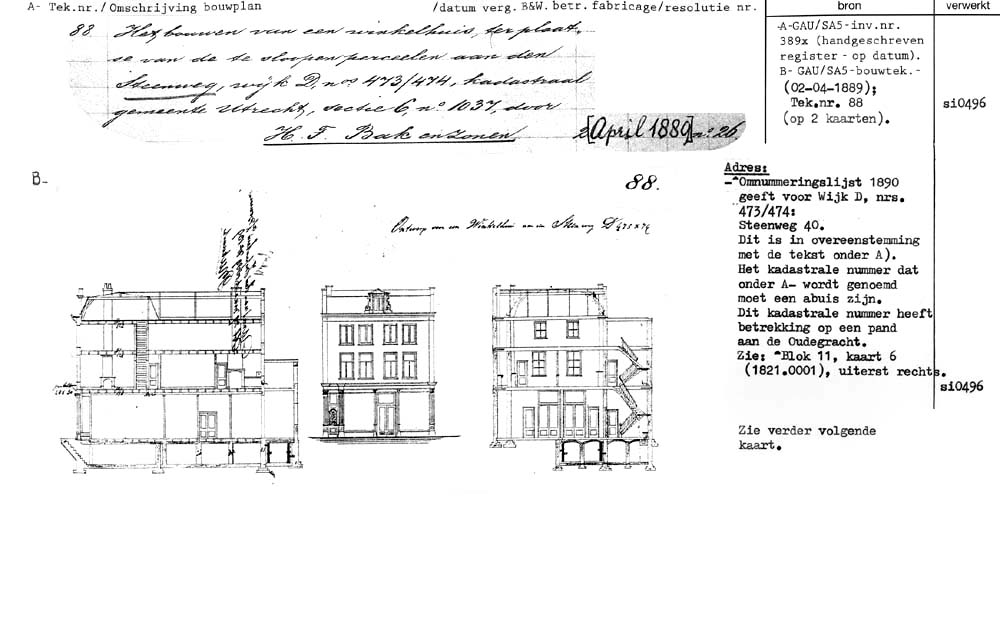 A- Tek.nr./Omschrijving bouwplan /datum verg. B&W. betr. fabricage/resolutie nr.
88 Het bouwen van een winkelhuis, ter plaat-
se van de te sloopen perceelen aan den
Steenweg, wijk D, nos 473/474, kadastraal
gemeente Utrecht, sectie C, no 1037, door
H. F. Bak en Zonen.
2 [April 1889] no. 26.
bron
A-GAU/SA5-inv.nr.
389x (handgeschreven
register - op datum).
B- GAU/SA5-bouwtek.-
(02-04-1889);
Tek.nr. 88
(op 2 kaarten).
verwerkt
si0496
B-
88.
Ontwerp van een Winkelhuis aan den Steenweg D 473 & 74
Adres:
-^Omnummeringslijst 1890
geeft voor Wijk D, nrs.
473/474:
Steenweg 40.
Dit is in overeenstemming
met de tekst onder A).
Het kadastrale nummer dat
onder A- wordt genoemd
moet een abuis zijn.
Dit kadastrale nummer heeft
betrekking op een pand
aan de Oudegracht.
Zie: ^Blok 11, kaart 6
(1821.0001), uiterst rechts.
si0496
Zie verder volgende
kaart.